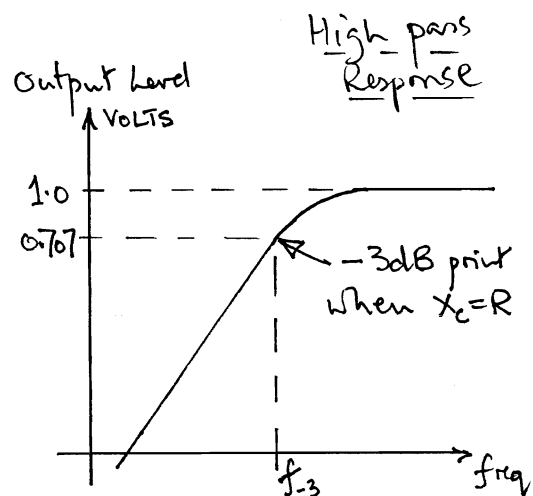 High pass
Response
Output level
VOLTS
1.0
0.707
-3dB point
when Xc=R
f-3
freq